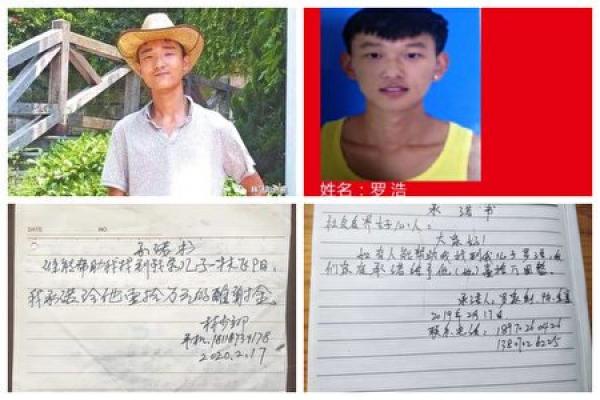 姓名：罗浩
DATE NO.
承诺书
谁能帮助我找到我的儿子—林飞阳
我承诺给他壹拾万元的酬谢金。
手机:18118739178
2020.2.17
承诺书
社会各界好心人：
大家好！
如有人能帮助我找到我儿子罗浩，我
们家庭承诺给予他（她）壹拾万圆整。
承诺人：罗
2019年2月17日
联系电话：